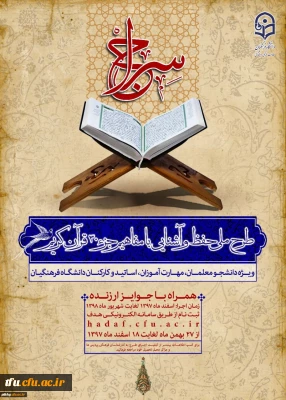 سراج
طرح ملی حفظ و آشنایی با مفاهیم جزء ۳۰ قرآن کریم
ویژه دانشجو معلمان، مهارت آموزان، اساتید و کارکنان دانشگاه فرهنگیان
همراه با جوایز ارزنده
زمان اجرا: اسفند ماه ۱۳۹۷ لغایت شهریور ماه ۱۳۹۸
ثبت نام از طریق سامانه الکترونیکی هدف
hadaf.cfu.ac.ir
از ۲۷ بهمن ماه لغایت ۱۸ اسفند ماه ۱۳۹۷
dfu.cfu.ac.ir